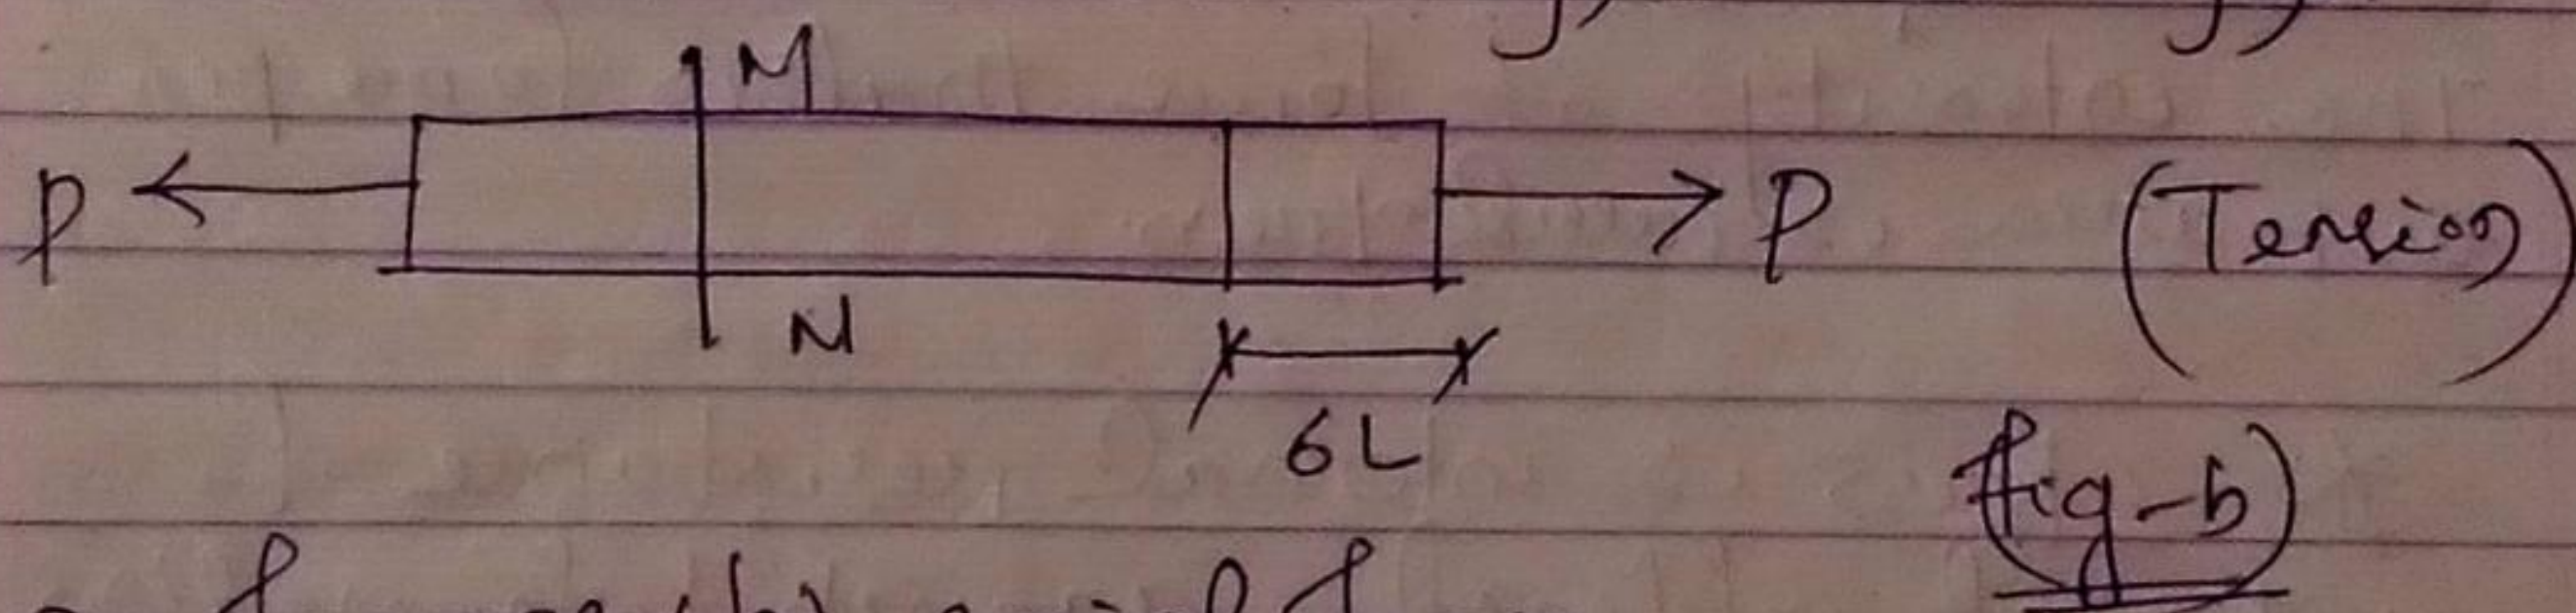 M
P P (Tension)
N
6L
(fig-b)